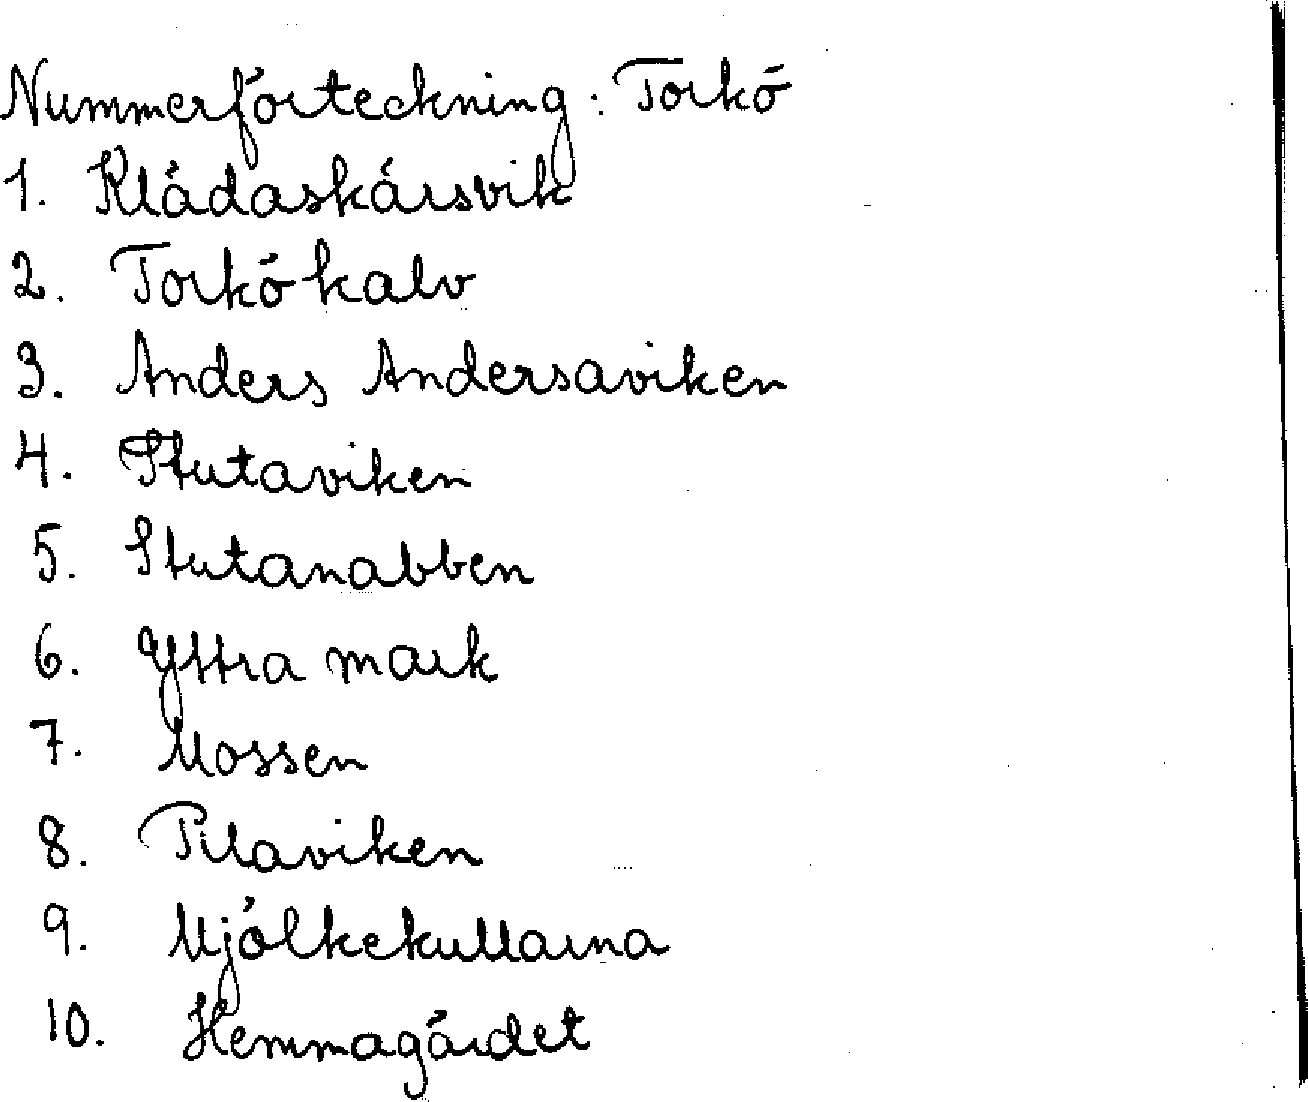 Nummerförteckning: Torkö
1. Klådaskärsvik
2. Torkökalv
3. Anders Andersaviken
4. Stutaviken
5. Stutanabben
6. Yttra mark
7. Mossen
8. Pilaviken
9. Mjölkekullarna
10. Hemmagärdet